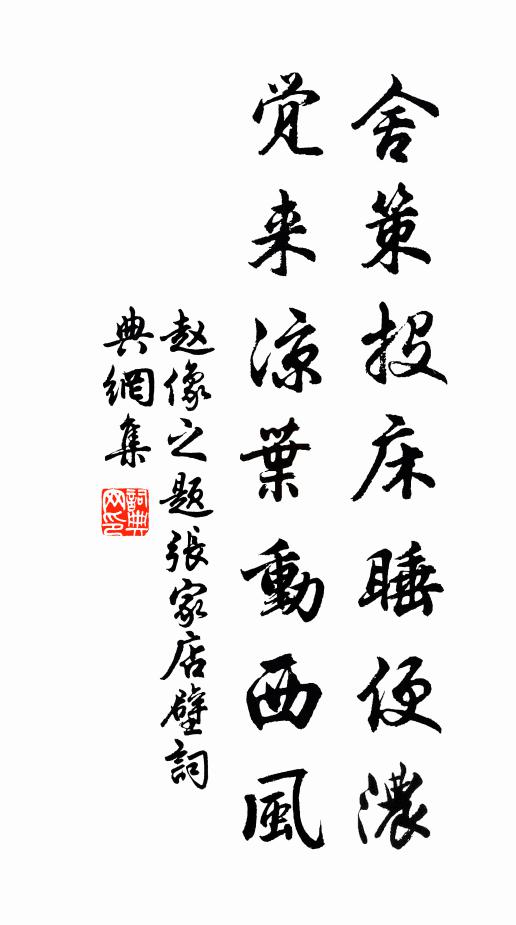 舍策投床睡便濃
覚来涼葉動西風
赵像之题張家店壁詞
典網集
詞典網印